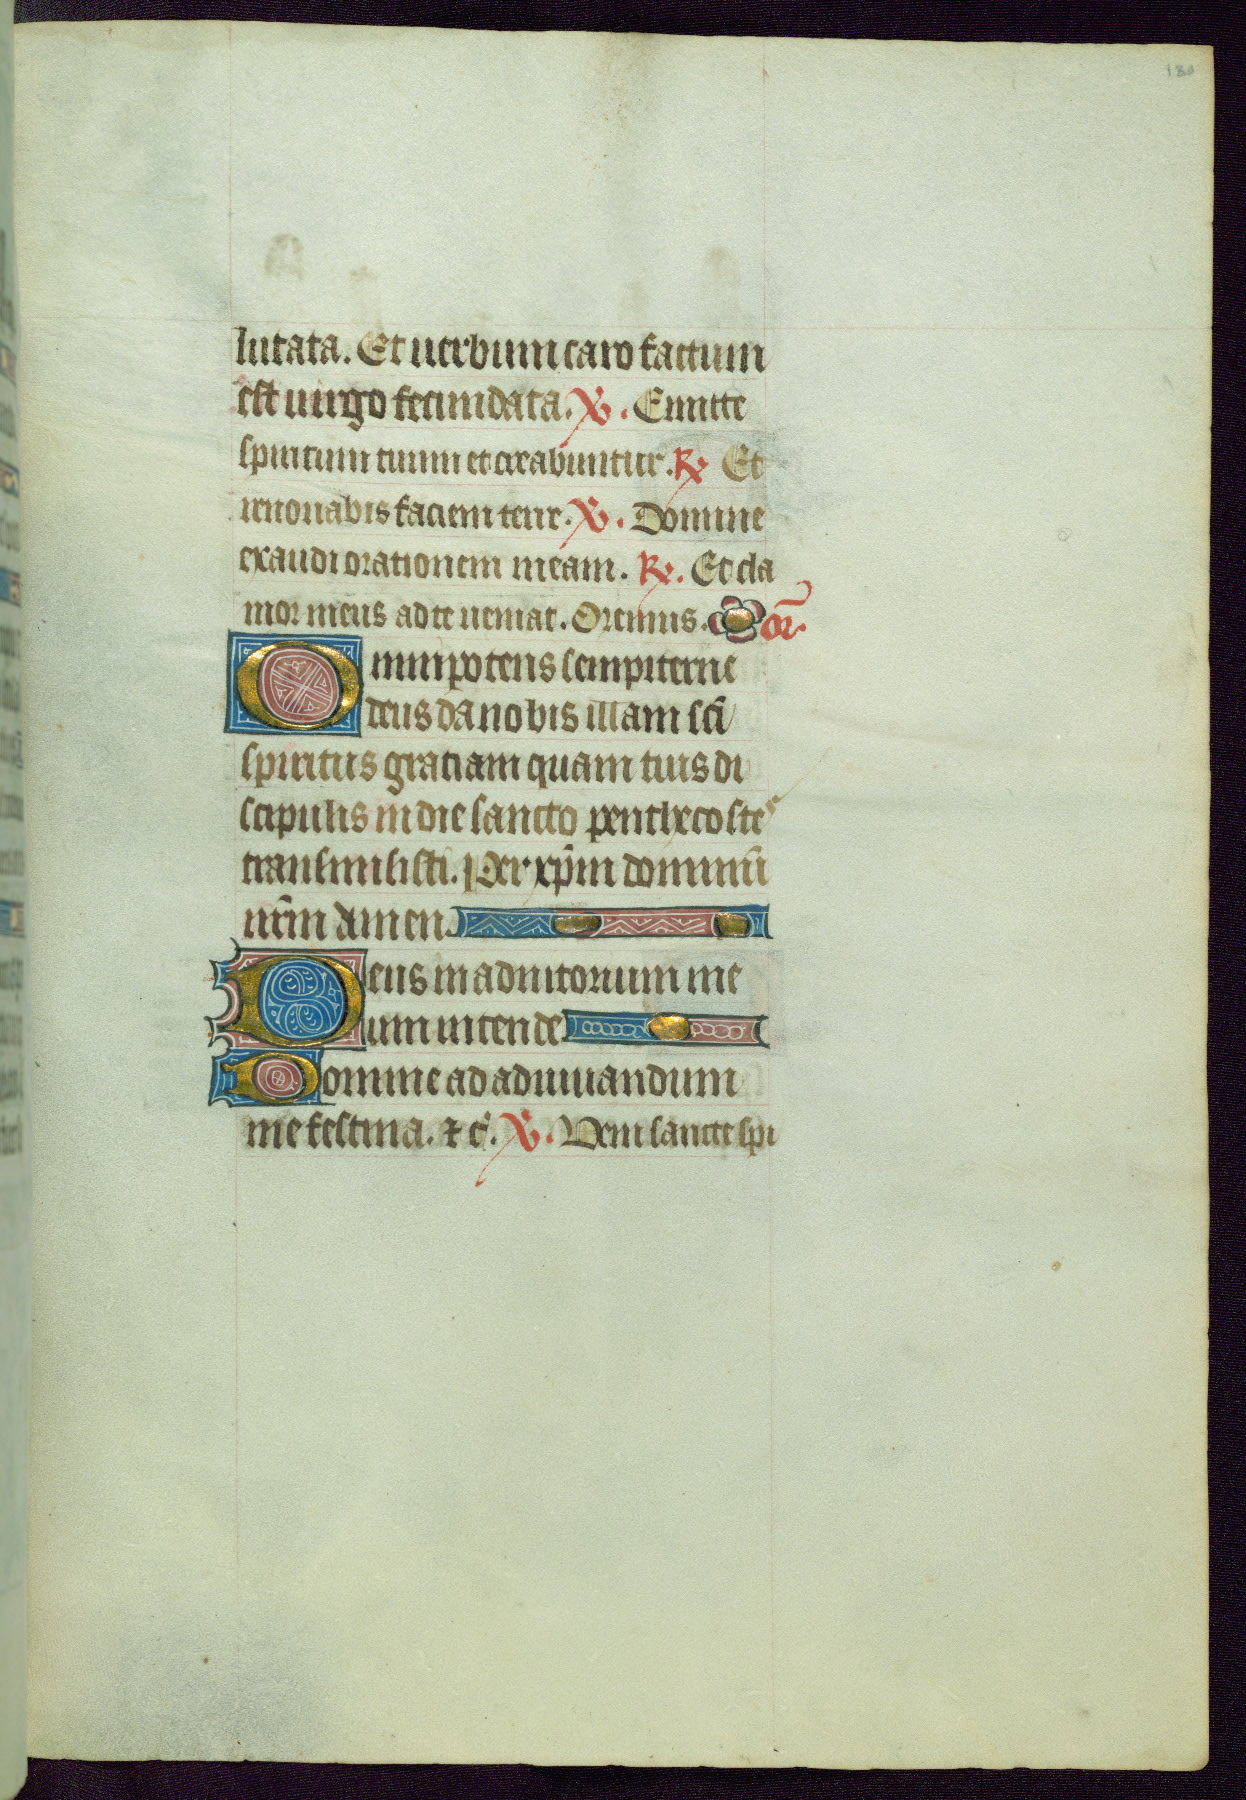 180
lutata. Et uerbum caro factum
est uirgo fecundata. ℣. Emitte
spiritum tuum et creabuntur. ℟ Et
renouabis faciem terre. ℣. Domine
exaudi orationem meam. ℟. Et cla
mor meus ad te ueniat. Oremus. or̄.
Omnipotens sempiterne
deus da nobis illam sc̄i
spiritus gratiam quam tuis di
scipulis in die sancto penthecostes
transmisisti. Per xp̄m dominū
nr̄m amen.
Deus in adiutorium me
um intende
Domine ad adiuuandum
me festina. ⁊ c̄. ℣. Veni sancte spi